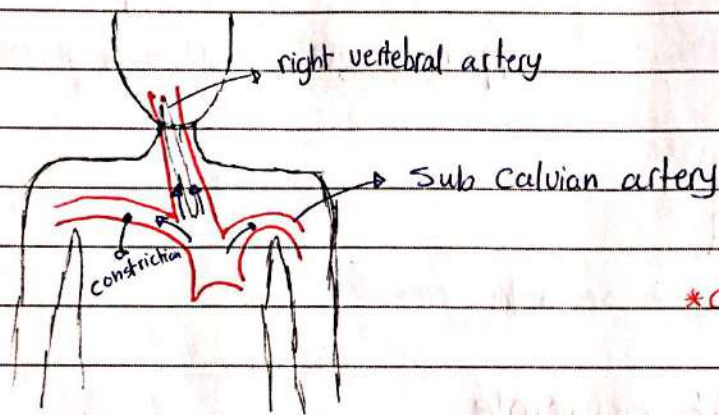 right vertebral artery
Sub Calvian artery
constriction
*